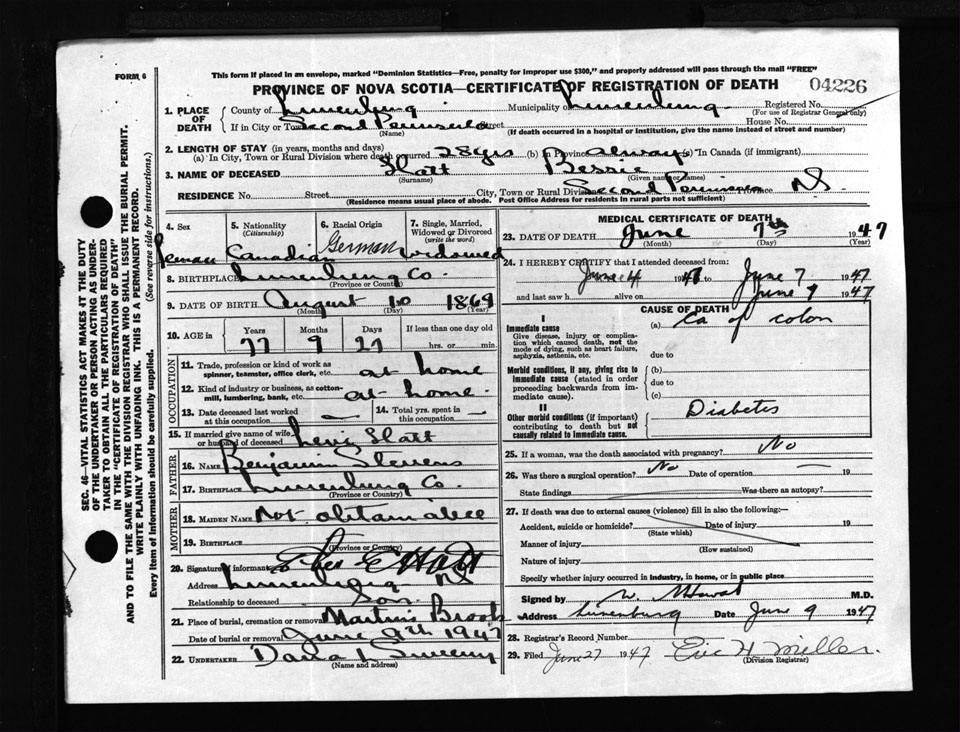 FORM 6
This form if placed in an envelope, marked "Dominion Statistics—Free, penalty for improper use $300," and properly addressed will pass through the mail "FREE"
PROVINCE OF NOVA SCOTIA—CERTIFICATE OF REGISTRATION OF DEATH
04226
SEC. 46—VITAL STATISTICS ACT MAKES IT THE DUTY
OF THE UNDERTAKER OR PERSON ACTING AS UNDER-
TAKER TO OBTAIN ALL THE PARTICULARS REQUIRED
IN THE "CERTIFICATE OF REGISTRATION OF DEATH"
AND TO FILE THE SAME WITH THE DIVISION REGISTRAR WHO SHALL ISSUE THE BURIAL PERMIT.
WRITE PLAINLY WITH UNFADING INK. THIS IS A PERMANENT RECORD.
Every item of information should be carefully supplied. (See reverse side for instructions.)
1. PLACE OF DEATH
County of Lunenburg Municipality of Lunenburg Registered No.
(For use of Registrar General only)
If in City or Town Second Peninsula Street House No.
(Name) (If death occurred in a hospital or institution, give the name instead of street and number)
2. LENGTH OF STAY (in years, months and days)
(a) In City, Town or Rural Division where death occurred 28 yrs (b) In Province always (c) In Canada (if immigrant)
3. NAME OF DECEASED Hatt Bessie
(Surname) (Given name or names)
RESIDENCE No. Street City, Town or Rural Division Second Peninsula Province NS.
(Residence means usual place of abode. Post Office Address for residents in rural parts not sufficient)
4. Sex 5. Nationality (Citizenship) 6. Racial Origin 7. Single, Married, Widowed or Divorced (write the word)
Canadian German widowed
8. BIRTHPLACE Lunenburg Co.
(Province or Country)
9. DATE OF BIRTH August 10 1869
(Month) (Day) (Year)
10. AGE in Years Months Days If less than one day old
77 9 27 hrs. or min.
OCCUPATION
11. Trade, profession or kind of work as spinner, teamster, office clerk, etc. at home
12. Kind of industry or business, as cotton-mill, lumbering, bank, etc. at home.
13. Date deceased last worked at this occupation — 14. Total yrs. spent in this occupation —
15. If married give name of wife or husband of deceased Levi Hatt
FATHER
16. NAME Benjamin Stevens
17. BIRTHPLACE Lunenburg Co.
(Province or Country)
MOTHER
18. MAIDEN NAME Not obtainable
19. BIRTHPLACE
(Province or Country)
20. Signature of informant E Hatt
Address Lunenburg NS
Relationship to deceased Son.
21. Place of burial, cremation or removal Martins Brook
Date of burial or removal June 9th 1947
22. UNDERTAKER Dana L Sweeny
(Name and address)
MEDICAL CERTIFICATE OF DEATH
23. DATE OF DEATH June 7th 1947
(Month) (Day) (Year)
24. I HEREBY CERTIFY that I attended deceased from:
June 4 1947 to June 7 1947
and last saw h alive on June 7 1947
CAUSE OF DEATH
I
Immediate cause
Give disease, injury or complication which caused death, not the mode of dying, such as heart failure, asphyxia, asthenia, etc.
(a) Ca of colon
due to
Morbid conditions, if any, giving rise to immediate cause (stated in order proceeding backwards from immediate cause).
(b)
due to
(c)
II
Other morbid conditions (if important) contributing to death but not causally related to immediate cause.
Diabetes
25. If a woman, was the death associated with pregnancy? No
26. Was there a surgical operation? No Date of operation — 19
State findings Was there an autopsy?
27. If death was due to external causes (violence) fill in also the following:—
Accident, suicide or homicide? Date of injury 19
(State which)
Manner of injury
(How sustained)
Nature of injury
Specify whether injury occurred in industry, in home, or in public place
Signed by M.D.
Address Lunenburg Date June 9 1947
28. Registrar's Record Number
29. Filed June 27 1947 Eric H Miller.
(Division Registrar)